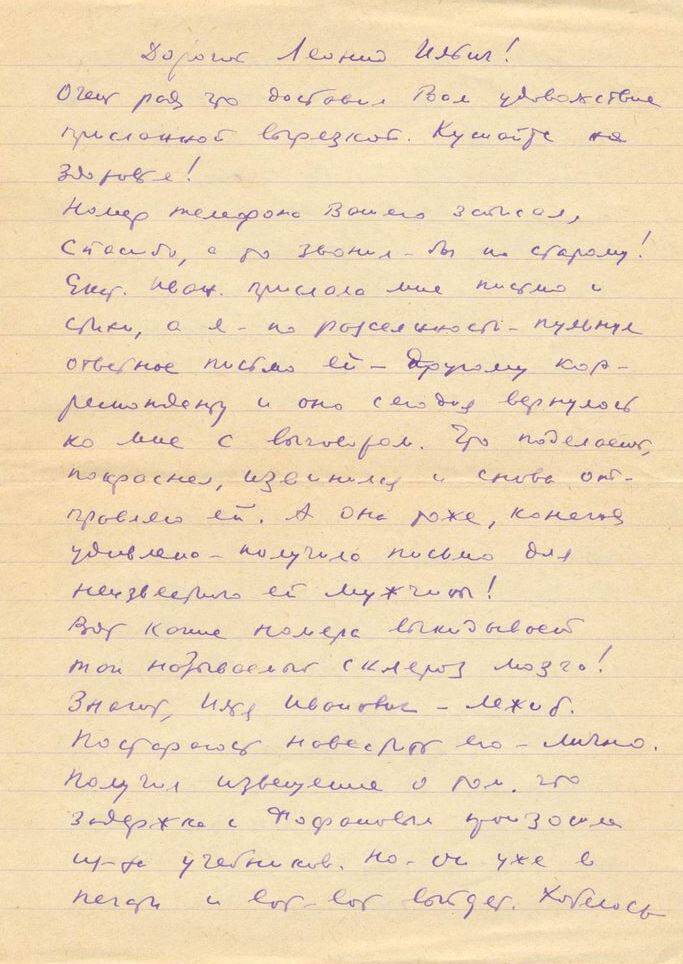 Дорогой Леонид Ильич!
Очень рад что доставил Вам удовольствие
присланной вырезкой. Кушайте на
здоровье!
Номер телефона Вашего записал,
Спасибо, а то звонил-бы по старому!
Екат. Иван. прислала мне письмо и
стихи, а я - по рассеянности - пульнул
ответное письмо ей - другому кор-
респонденту и оно сегодня вернулось
ко мне с выговором. Что поделаешь,
покраснел, извинился и снова от-
правляю ей. А она тоже, конечно
удивлена - получила письмо для
неизвестного ей мужчины!
Вот какие номера выкидывает
так называемый склероз мозга!
Значит, Илья Иванович - лежит.
Постараюсь навестить его - лично.
Получил извещение о том, что
задержка с Парфановым произошла
из-за учебников. Но - он уже в
печати и вот-вот выйдет. Хотелось